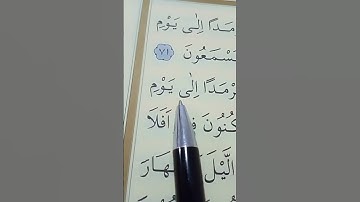 مَدًا اِلٰى يَوْمِ
تَسْمَعُونَ ٧١
رْمَدًا اِلٰى يَوْمِ
كُنُونَ اَفَلَا
الَّيْلَ هَارَ